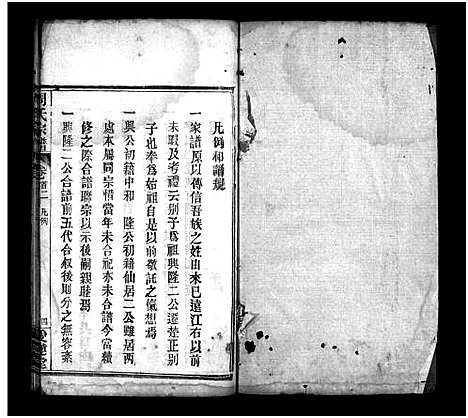 凡例和譜規
一家譜原以傳信吾族之姓由來已遠江右以前
未暇及考禮云别子爲祖興隆二公遷楚正别
子也奉爲始祖自是以前敬託之僾想焉
一興公初籍中和 隆公初籍仙居二公雖居兩
處本屬同宗惜當年未合祀亦未合譜今當續
修之際合譜聯宗以示後嗣親睦焉
一興隆二公合譜前五代合叙後則分之無容紊
周氏宗譜
卷首二 凡例
四
堂